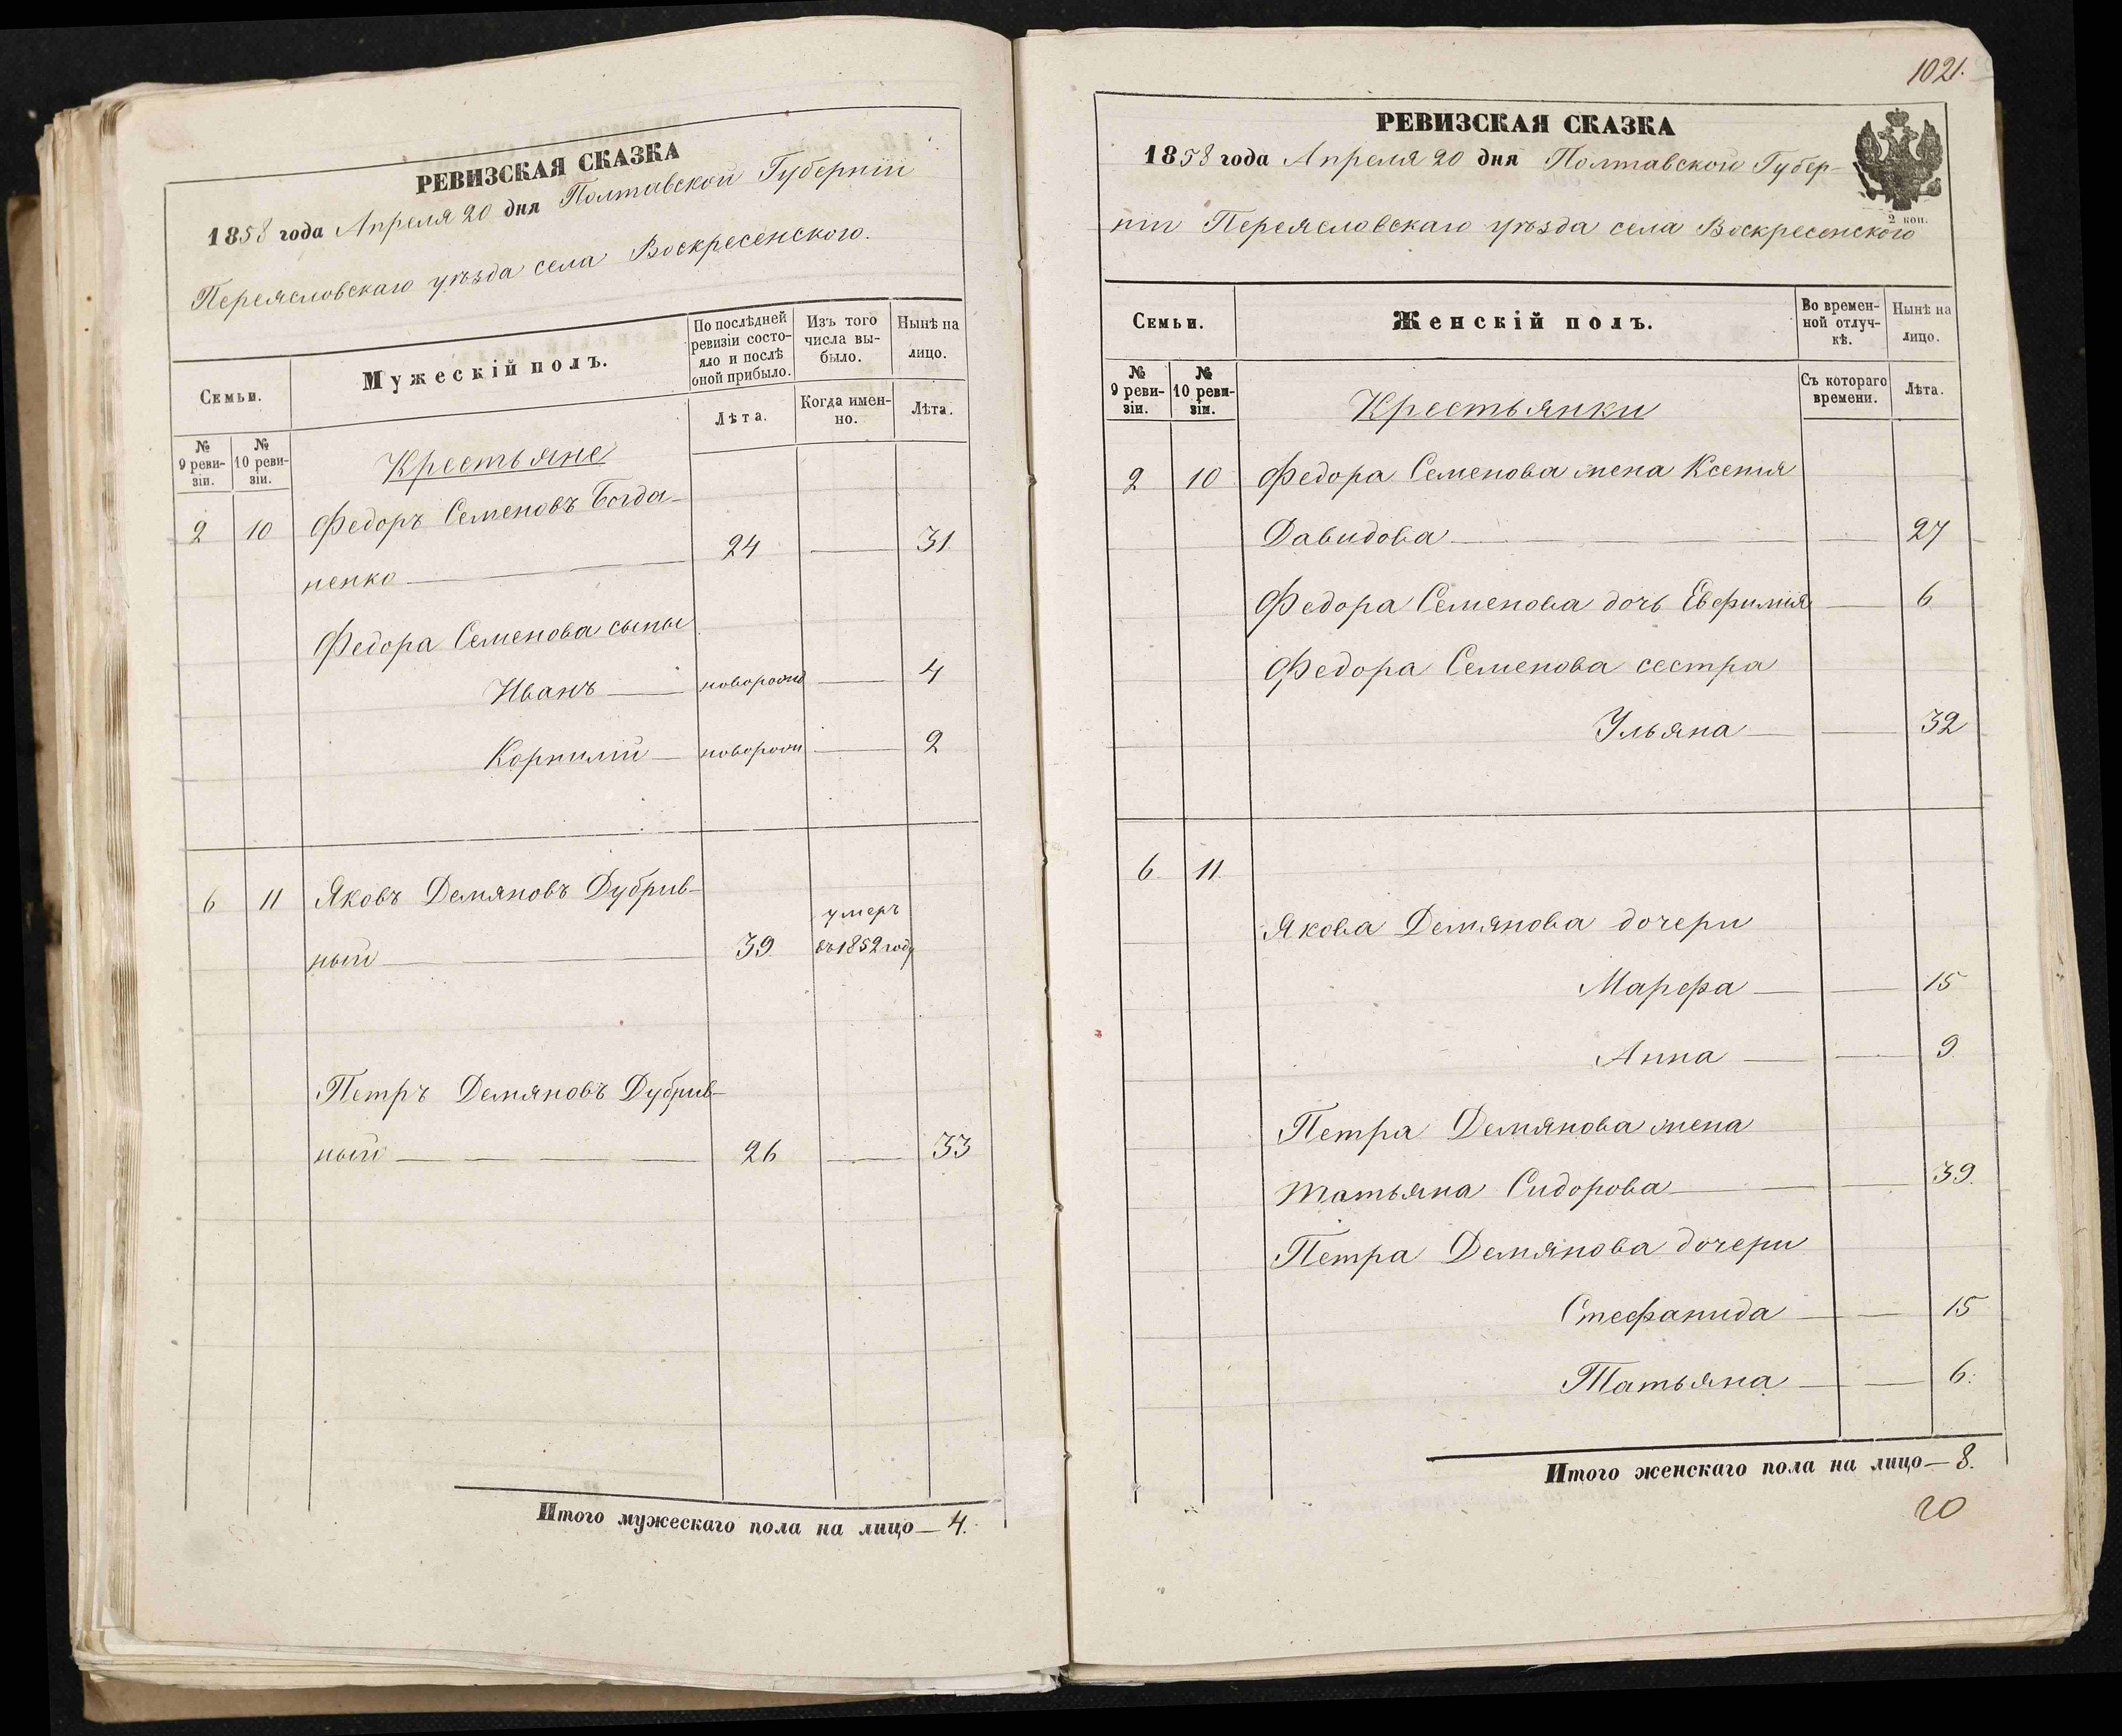 РЕВИЗСКАЯ СКАЗКА
1858 года Апреля 20 дня Полтавской Губерніи
Переясловскаго уѣзда села Воскресенского.
Семьи.
Мужескій полъ.
По послѣдней
ревизіи состо-
яло и послѣ
оной прибыло.
Изъ того
числа вы-
было.
Нынѣ на
лицо.
Лѣта.
Когда имен-
но.
Лѣта.
№
9 реви-
зіи.
№
10 реви-
зіи.
Крестьяне
2 10 Федоръ Семеновъ Богда-
ненко 24 31
Федора Семенова сыны
Иванъ новорожд 4
Корнилій новорож 2
6 11 Яковъ Демяновъ Дубрив-
ный 39 умеръ
въ 1852 году
Петръ Демяновъ Дубрив-
ный 26 33
Итого мужескаго пола на лицо — 4.
1021.
РЕВИЗСКАЯ СКАЗКА
1858 года Апреля 20 дня Полтавской Губер-
ніи Переясловскаго уѣзда села Воскресенского
2 коп.
Семьи.
Женскій полъ.
Во времен-
ной отлуч-
кѣ.
Нынѣ на
лицо.
№
9 реви-
зіи.
№
10 реви-
зіи.
Крестьянки
Съ котораго
времени.
Лѣта.
2 10 Федора Семенова жена Ксенія
Давидова 27
Федора Семенова дочь Евфимія 6
Федора Семенова сестра
Ульяна 32
6 11
Якова Демянова дочери
Марфа 15
Анна 9
Петра Демянова жена
Татьяна Сидорова 39
Петра Демянова дочери
Стефанида 15
Татьяна 6.
Итого женскаго пола на лицо — 8.
20